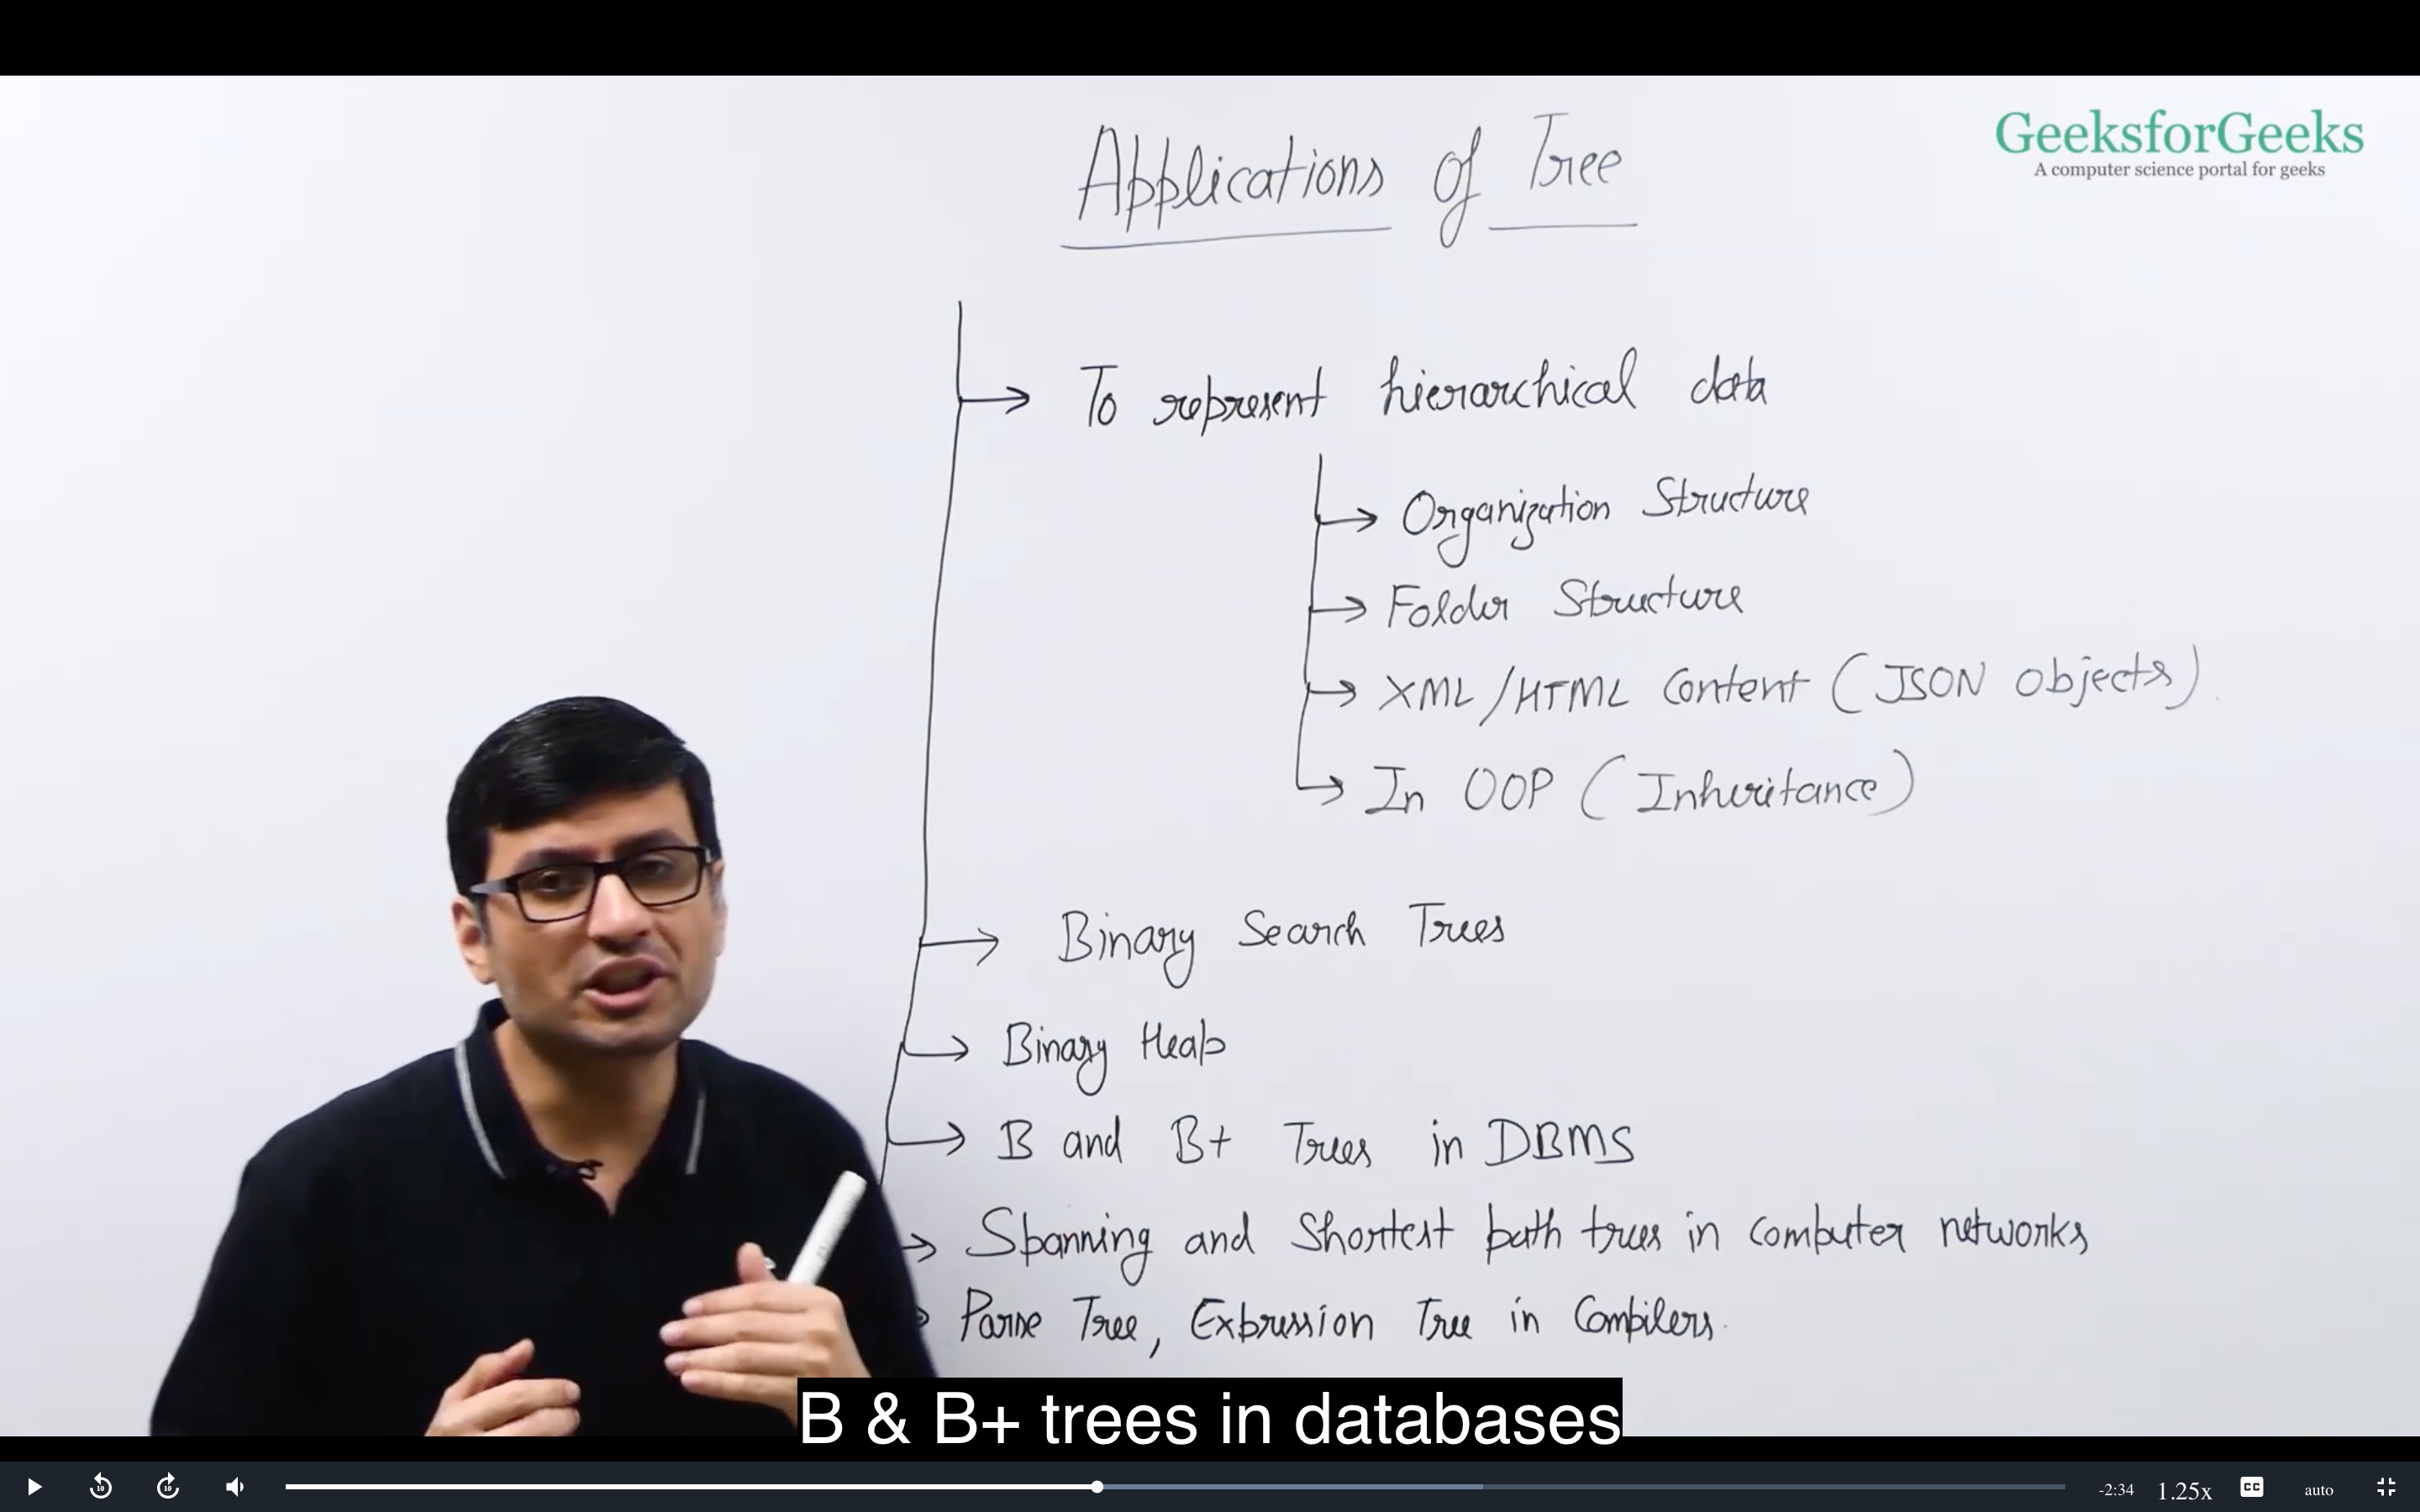 Applications of Tree
GeeksforGeeks
A computer science portal for geeks
To represent hierarchical data
Organization Structure
Folder Structure
XML/HTML Content (JSON Objects)
In OOP (Inheritance)
Binary Search Trees
Binary Heap
B and B+ Trees in DBMS
Spanning and Shortest path trees in computer networks
Parse Tree, Expression Tree in Compilers.
B & B+ trees in databases
10
10
-2:34
1.25x
CC
auto